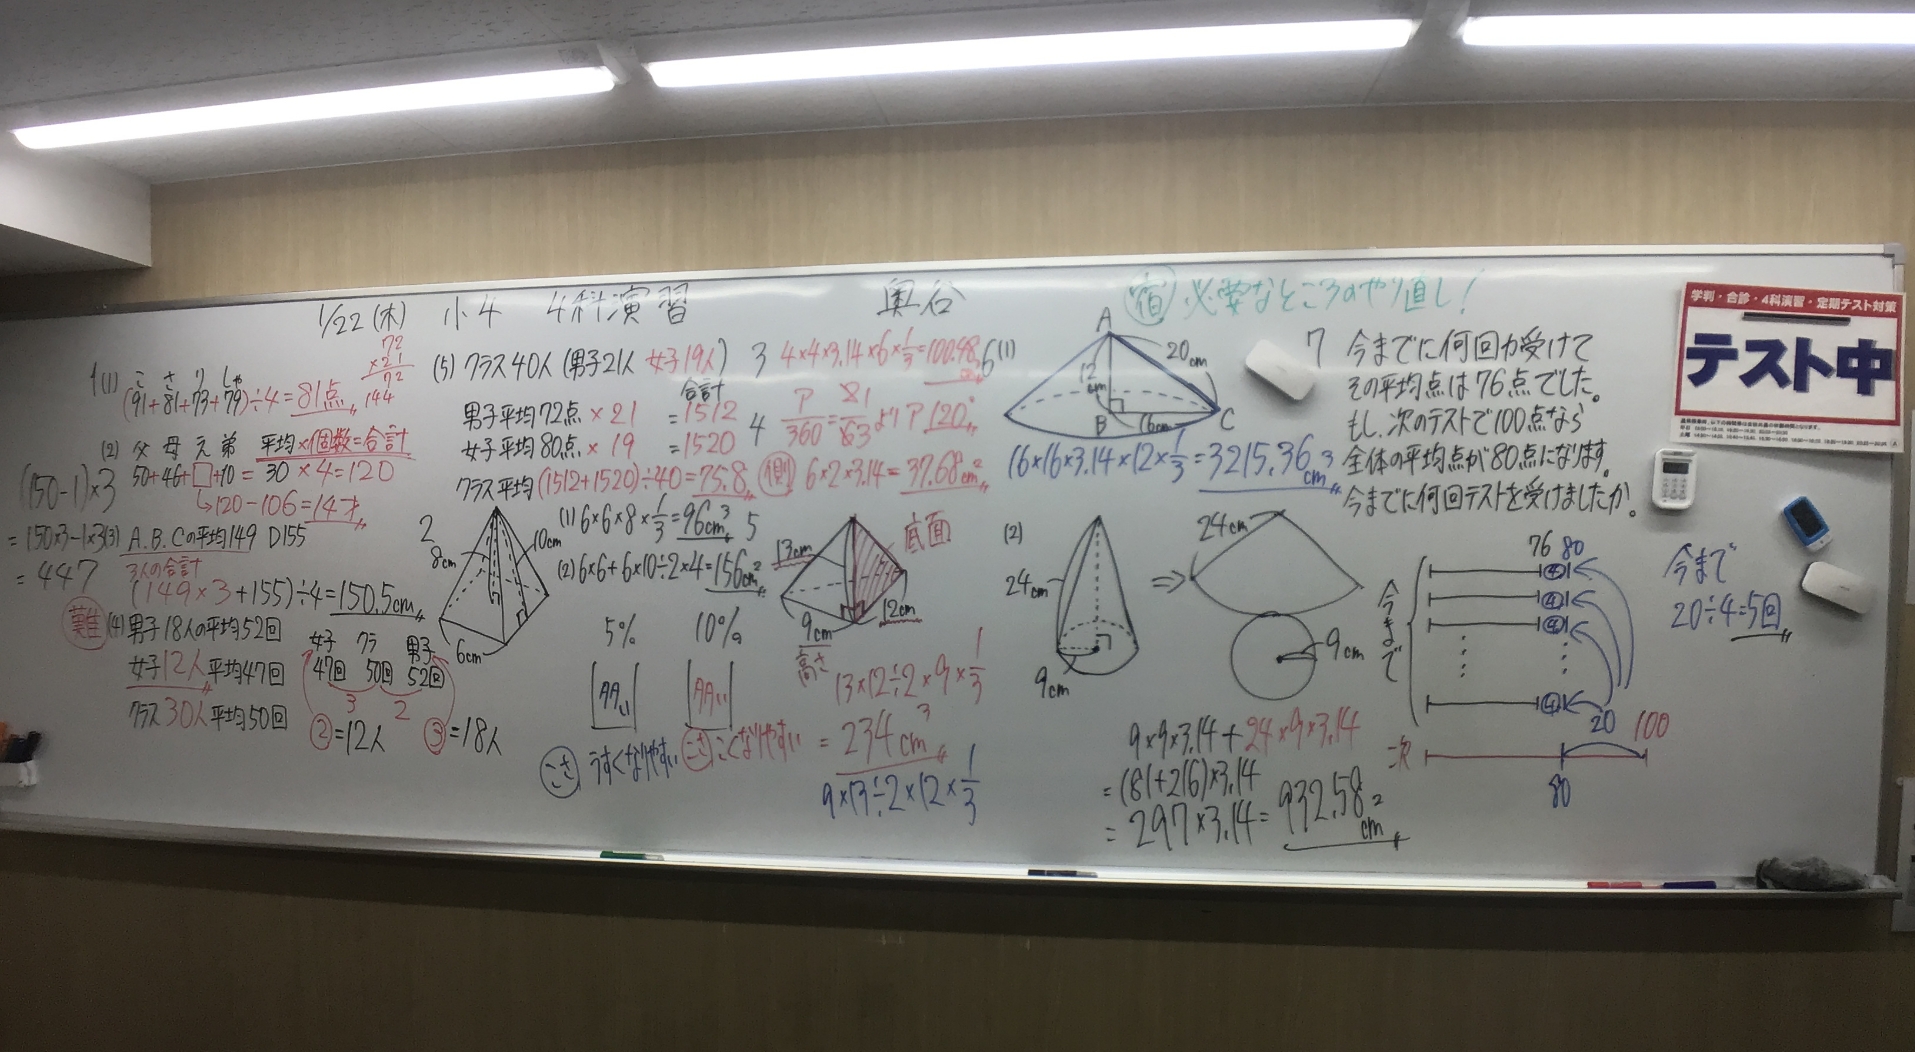 1/22(木) 小4 4科演習 奥谷
宿 必要なところのやり直し!
1(1) こ さ り しゃ
(91+81+73+79)÷4=81点
72
×21
72
144
(2) 父 母 兄 弟 平均×個数=合計
50+46+□+10=30×4=120
→120-106=14才
(150-1)×3
=150×3-1×3
=447
(3) A.B.Cの平均149 D155
3人の合計
(149×3+155)÷4=150.5cm
難 (4) 男子18人の平均52回
女子12人平均47回
クラス30人平均50回
女子 クラ 男子
47回 50回 52回
3 2
②=12人 ③=18人
(5) クラス40人(男子21人 女子19人)
合計
男子平均72点×21=1512
女子平均80点×19=1520
クラス平均(1512+1520)÷40=75.8
2
8cm
10cm
6cm
(1) 6×6×8×1/3=96cm³
(2) 6×6+6×10÷2×4=156cm²
5% 10%
こさ うすくなりやすい こさ こくなりやすい
3 4×4×3.14×6×1/3=100.48
4 P/360=21/63よりP120°
側 6×2×3.14=37.68cm²
5
13cm
底面
12cm
9cm
高さ
13×12÷2×9×1/3
=234cm³
9×13÷2×12×1/3
6(1)
A
20cm
12cm
B
16cm
C
16×16×3.14×12×1/3=3215.36cm³
(2)
24cm
9cm
⇒
24cm
9cm
9×9×3.14+24×9×3.14
=(81+216)×3.14
=297×3.14=932.58cm²
7 今までに何回か受けて
その平均点は76点でした。
もし、次のテストで100点なら
全体の平均点が80点になります。
今までに何回テストを受けましたか。
76 80
今まで
④
④
④
④
20
100
次
80
今まで
20÷4=5回
学判・合診・4科演習・定期テスト対策
テスト中